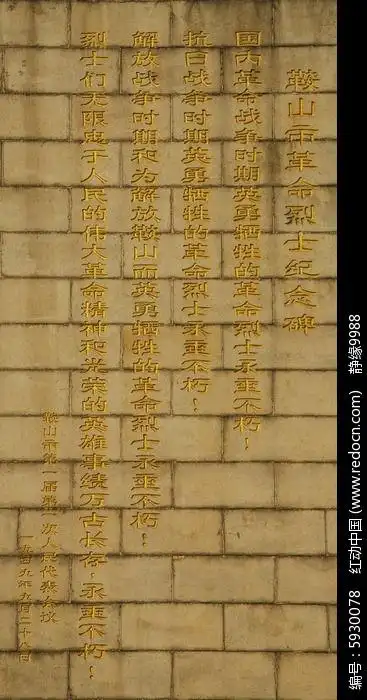 鞍山市革命烈士纪念碑
国内革命战争时期英勇牺牲的革命烈士永垂不朽！
抗日战争时期英勇牺牲的革命烈士永垂不朽！
解放战争时期和为解放鞍山而英勇牺牲的革命烈士永垂不朽！
烈士们无限忠于人民的伟大革命精神和光荣的英雄事绩万古长存，永垂不朽！
鞍山市第一届第一次人民代表会议
一九四九年九月二十八日
编号：5930078 红动中国 (www.redocn.com) 静缘9988